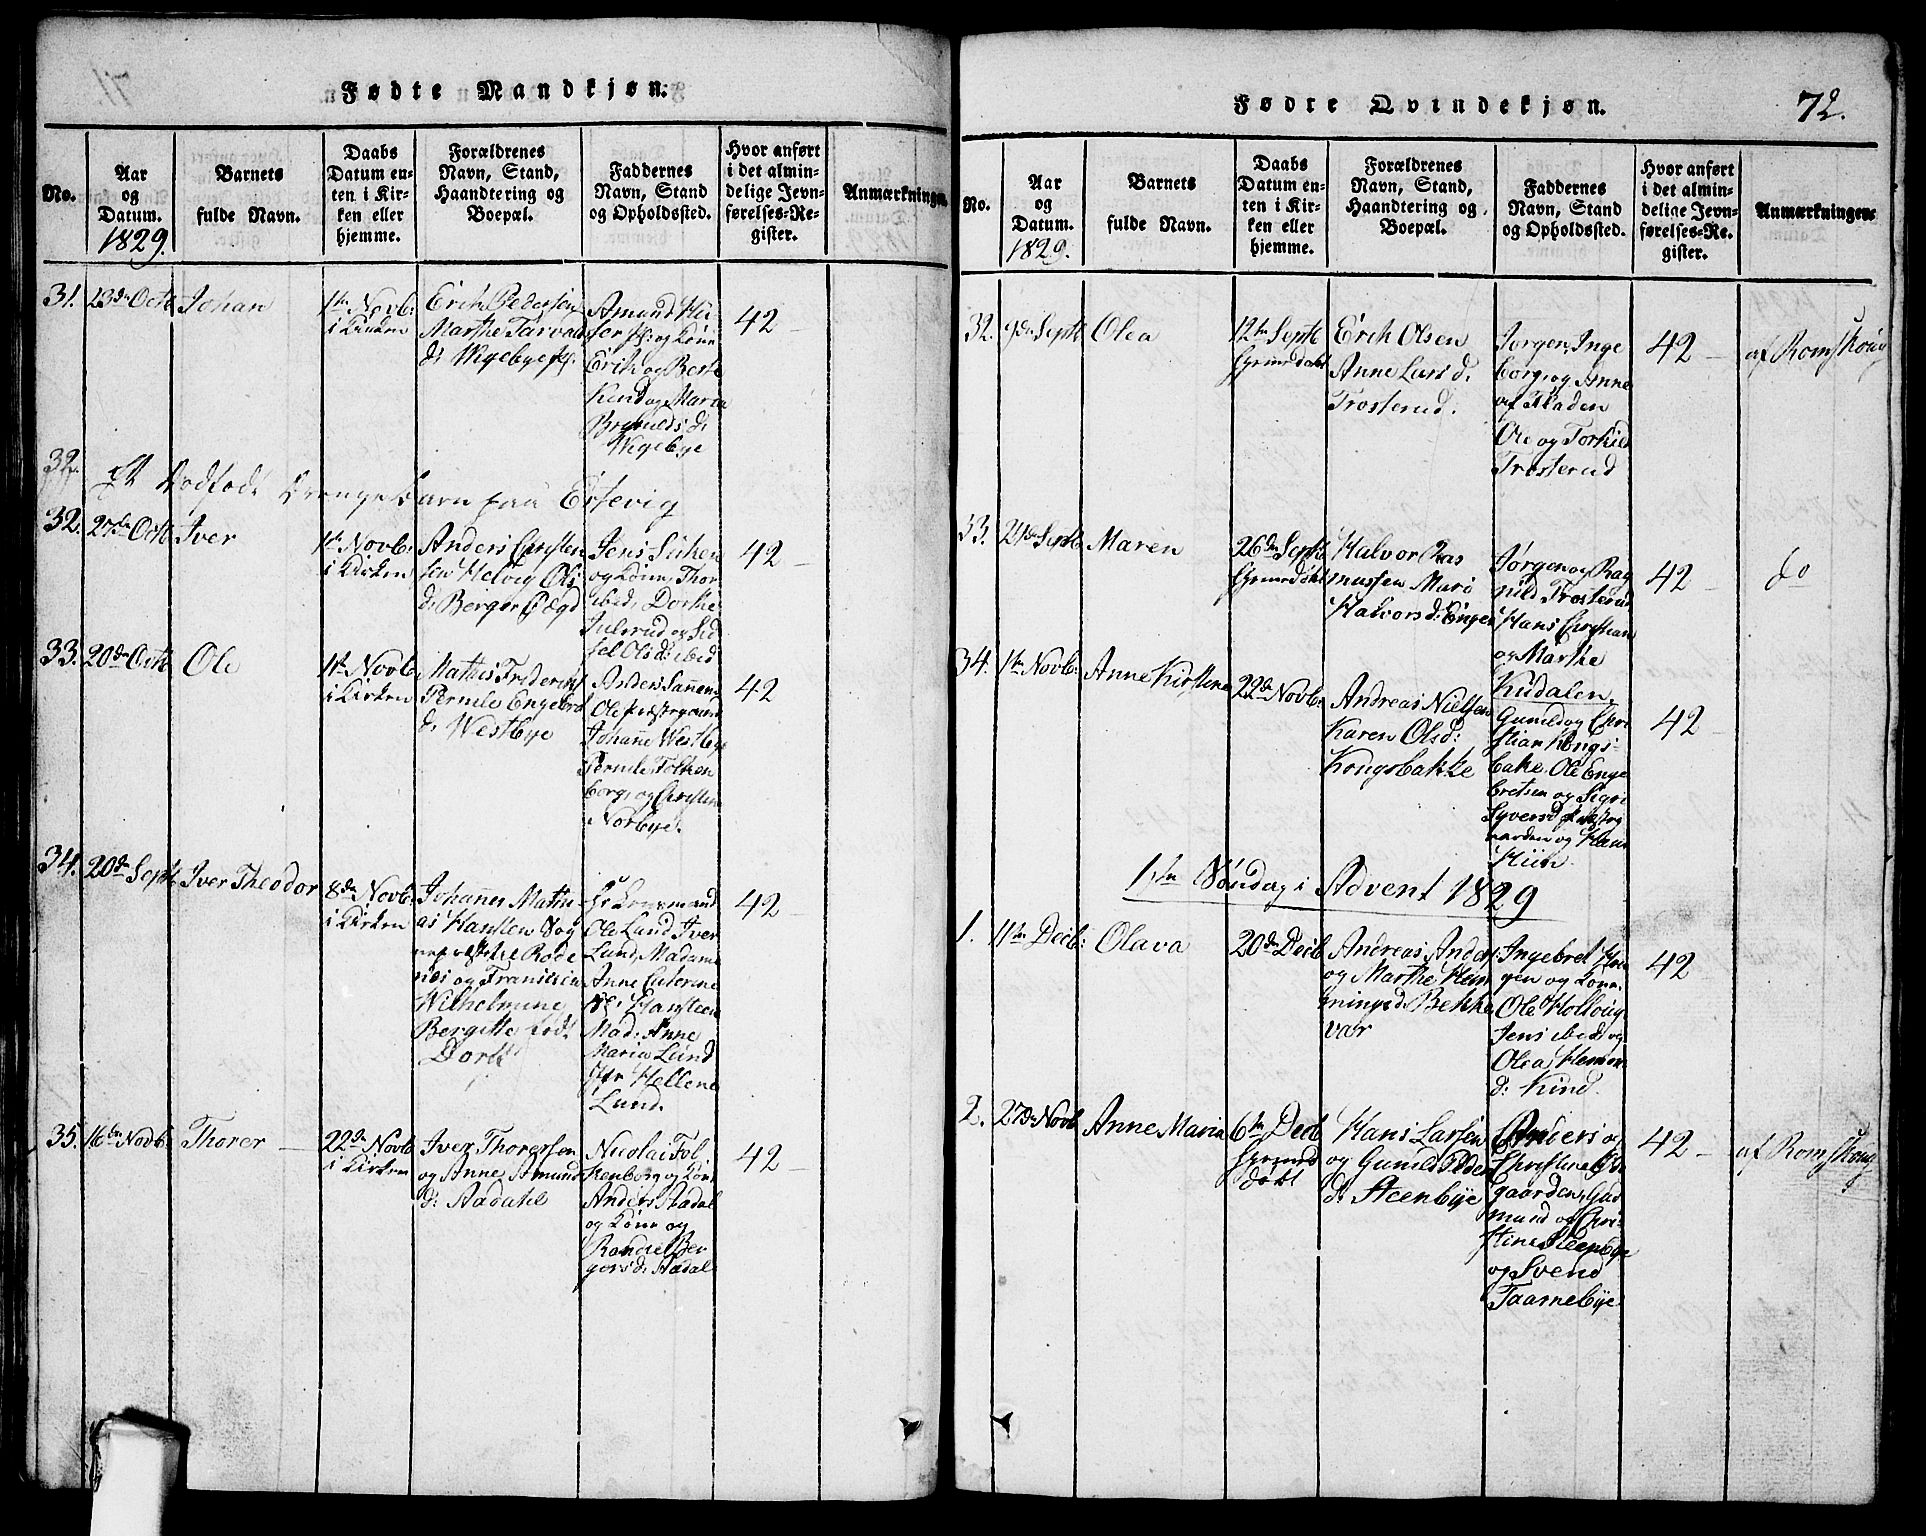 Fødte Mandkjøn.
No.
Aar
og
Datum.
1829.
Barnets
fulde Navn.
Daabs
Datum en-
ten i Kir-
ken eller
hjemme.
Forældrenes
Navn, Stand,
Haandtering og
Boepæl.
Faddernes
Navn, Stand
og Opholdssted.
Hvor anført
i det almin-
delige Jevn-
førelses-Re-
gister.
Anmærkninger.
31.
23de Octb
Johan
1te Novb:
i Kirken
Erich Pedersen
Marthe Tarvald
d: Wigebye
Amund
og Kone
Erik og Berte
Kind og Maria
d:
Wigebye
42
32.
Et dødfødt Drengebarn paa Ertevig
32.
27de Octb
Iver
1te Novb:
i Kirken
Anders Christen
sen Helvig Ols
d:
Jens
og Kone, Thor
ibid, Dorthe
Julsrud og Sid
sel Olsd: ibid
42
33.
20de Octb
Ole
1te Novb:
i Kirken
Mathis Frideriks
Pernele Engebret
d: Westbye
Anders
Ole Præstegaard
Johanne Westbye
Pernele Folken
borg, og Christian
Norbye.
42
34.
20de Septb
Iver Theodor
8de Novb:
i Kirken
Johannes Mathi
as Hansten Sog
nepræst til Røde
næs og Francisca
Wilhelmine
Bergitte født
Dorth
Hr Lensmand
Ole Lund Iver
Lund, Madame
Anne Catrine
Hansteen
Mad: Anne
Maria Lund
Jfr Hellene
Lund.
42
35.
16te Novb:
Thorer
22de Novb
i Kirken
Iver Thorersen
og Anne Amund
d: Aadahl
Nicolai Fol
kenborg og Kone
Anders Aadal
og Kone og
Randie Ber
gersd: Aadal
42
Fødte Qvindekjøn.
72.
No.
Aar
og
Datum.
1829.
Barnets
fulde Navn.
Daabs
Datum en-
ten i Kir-
ken eller
hjemme.
Forældrenes
Navn, Stand,
Haandtering og
Boepæl.
Faddernes
Navn, Stand
og Opholdssted.
Hvor anført
i det almin-
delige Jevn-
førelses-Re-
gister.
Anmærkninger.
32.
9de Septb
Olea
12te Septb
hjemedøbt
Erich Olsen
Anne Larsd:
Trosterud.
Jørgen, Inge
borg, og Anne
af Fladen
Ole og Torkild
Trosterud
42
af Romskoug
33.
21de Septb
Maren
26de Septb
hjemedøbt
Halvor Ras
mussen Mari
Halvorsd: Engen
Jørgen og Rag
nild Trosterud
Hans Christian
og Marthe
Kuddalen
42
do
34.
1te Novb:
Anne Kirstine
22de Novb:
Andreas Nielsen
Karen Olsd:
Kongsbakke
Gunild og Chri
stian Kongs-
bake. Ole Enge
bretsen og Sigri
Syversd Præsteg
aarden og Hans
Hiin.
42
1te Søndag i Advent 1829
1.
11te Decb:
Olava
20de Decb
Andreas Anders
og Marthe Hen
ningsd: Bekke
var
Ingebret
og Kone.
Ole
Jens ibid og
Olea
d: Kind.
42
2.
27de Novb
Anne Maria
6te Decb
hjemme
døbt
Hans Larsen
og Gunild Peders
d: Steenbye
Anders og
Christine
gaarden, Gud
mund og Chri-
stine Steenbye
og Svend
Taarnebye
42
af Romskoug